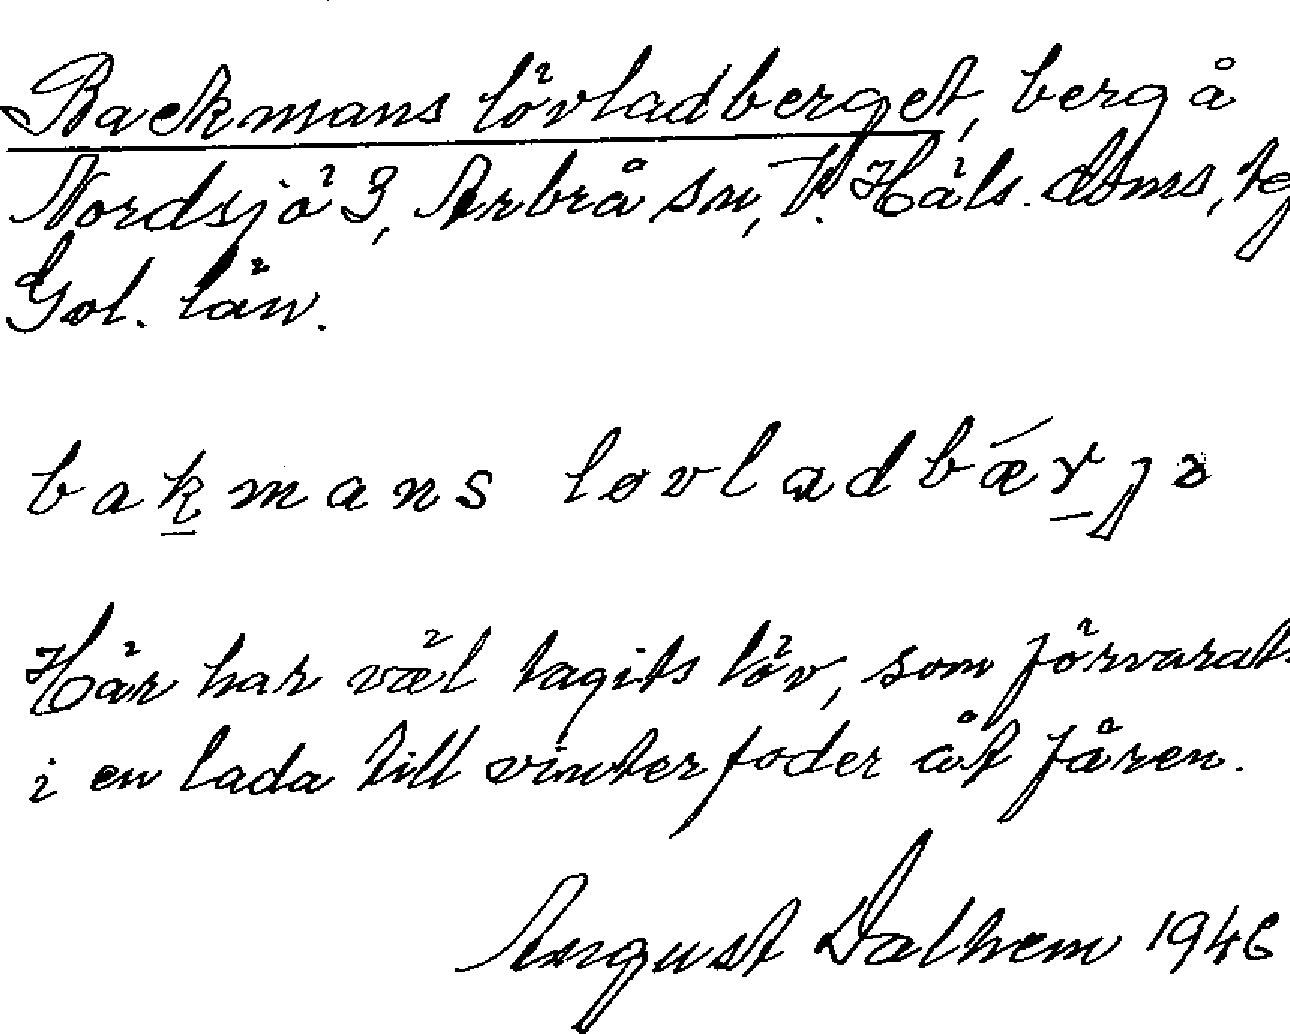 Backmans lövladberget, berg å
Nordsjö 3, Arbrå sn, V. Häls. doms.,
Gol. län.
bakmans løvladbærjə
Här har väl tagits löv, som förvarats
i en lada till vinterfoder åt fåren.
August Dalhem 1946